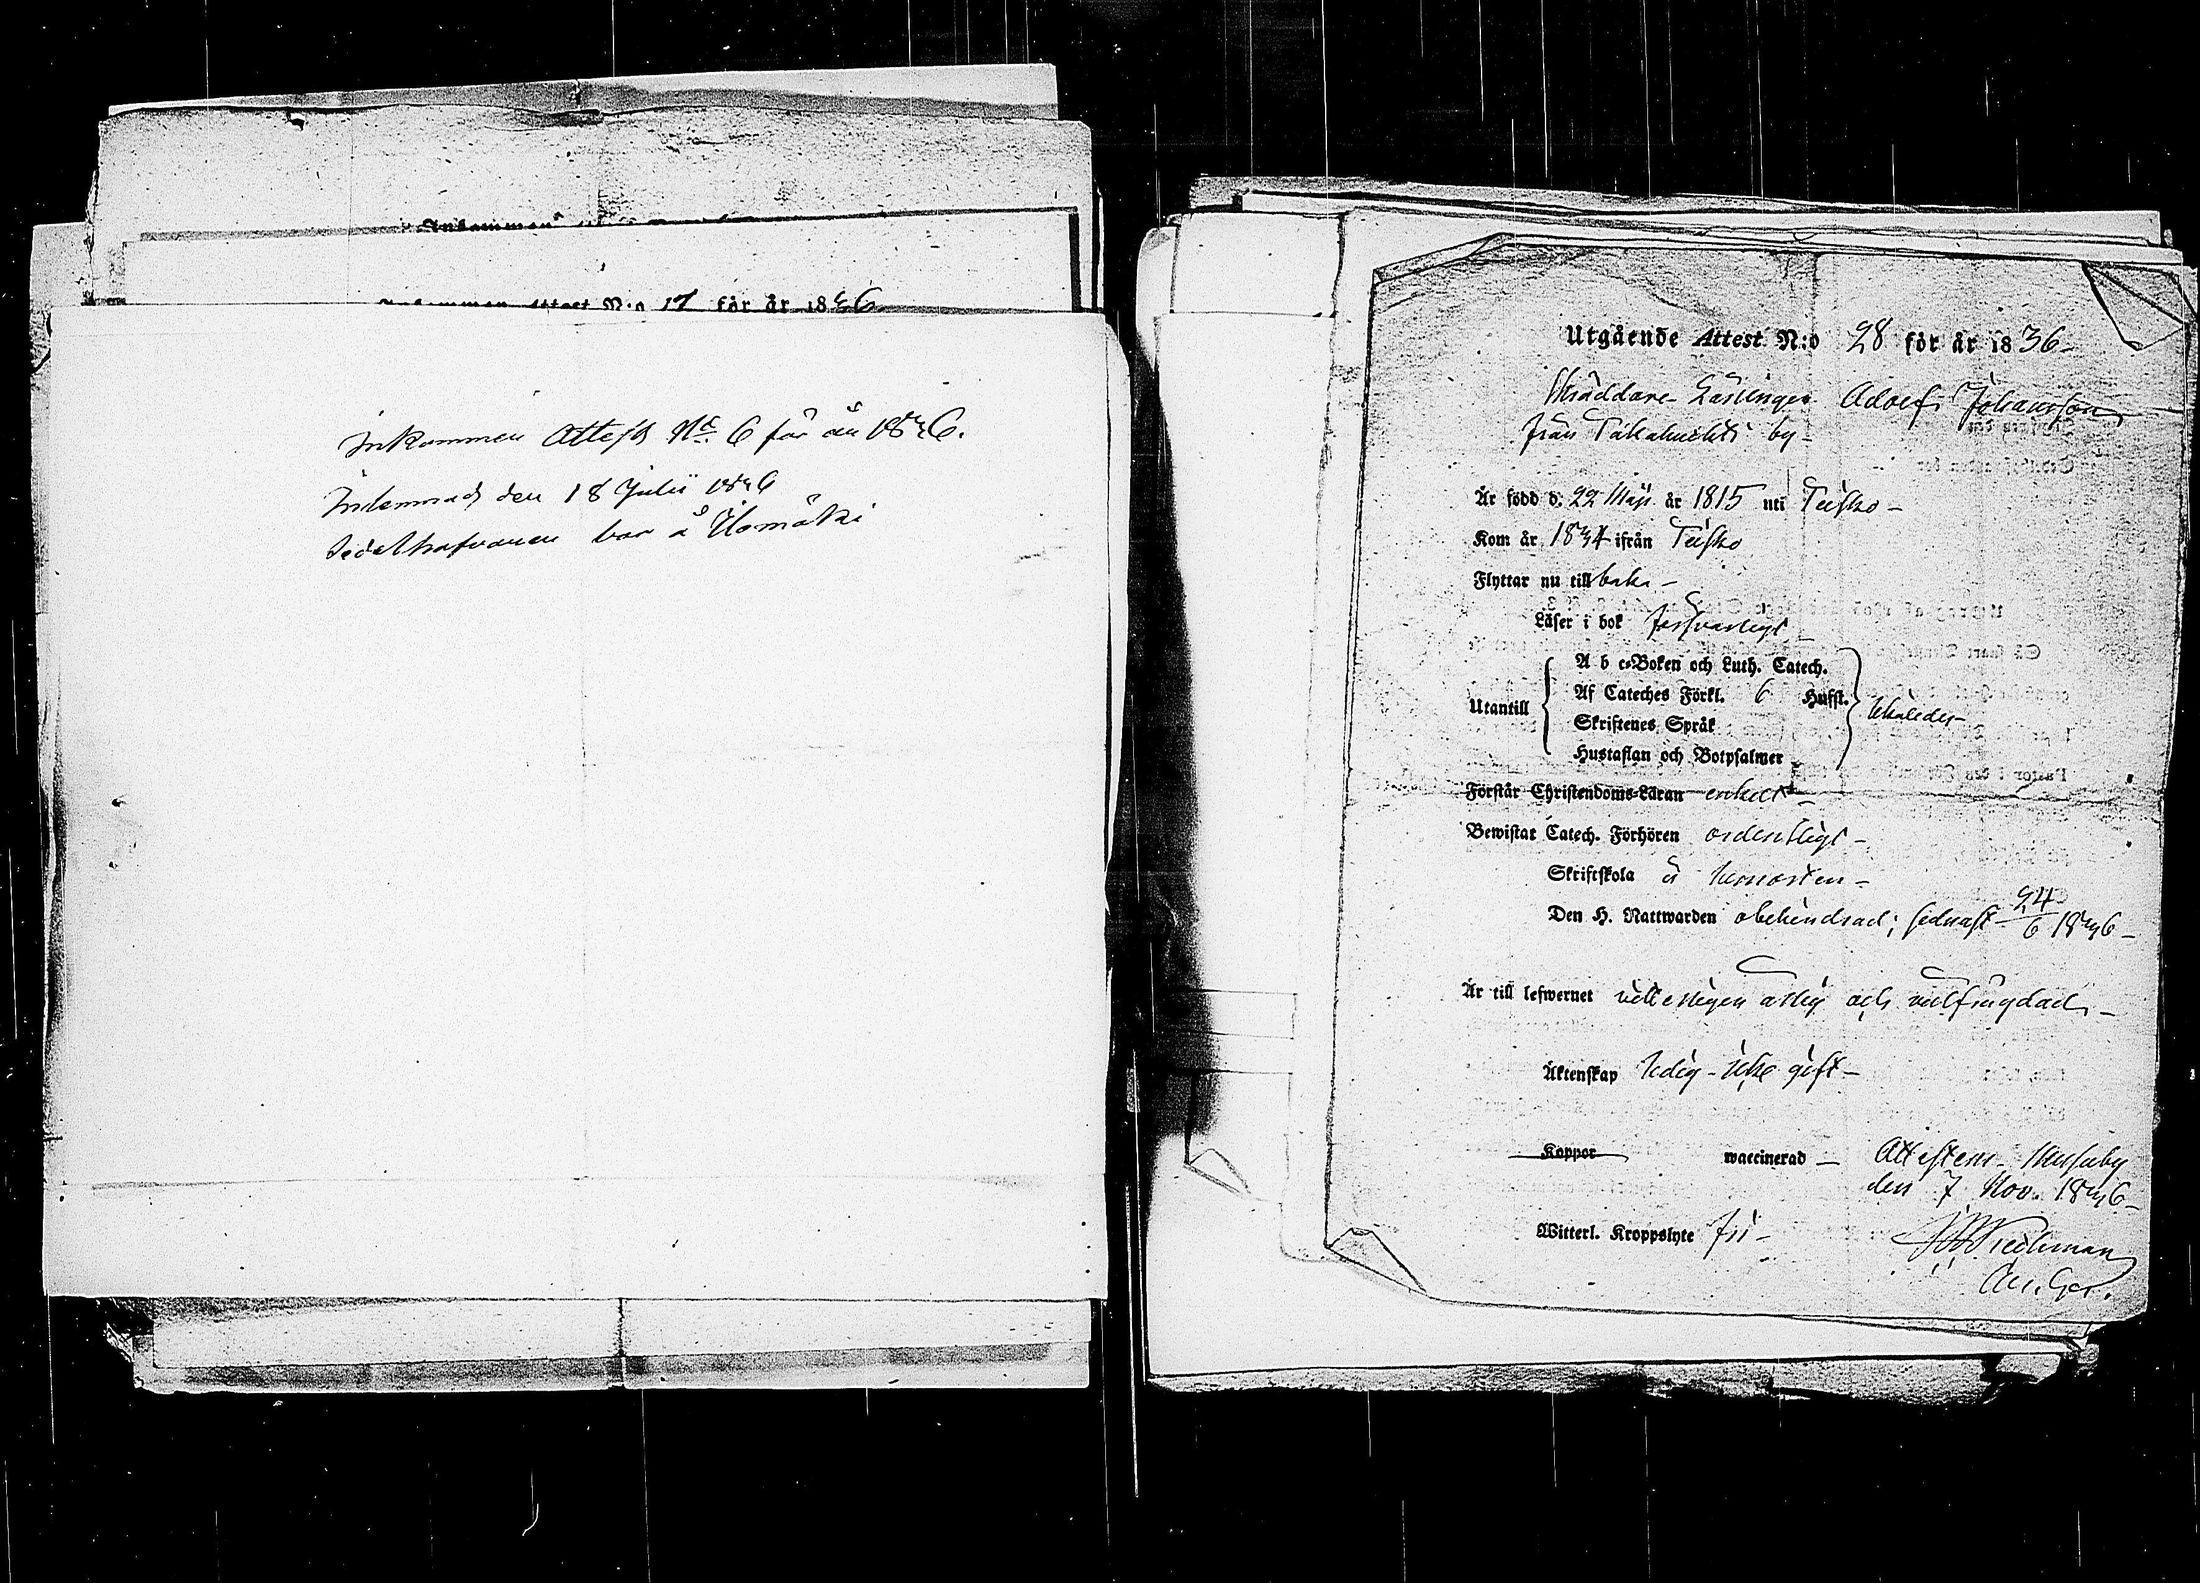 Inkommen Attest N:o 17 för år 1836
Inkommen Attest No 6 för år 1836.
Inlemnad den 18 Julii 1836
Sedelhafvaren bor å Ilomäki
Utgående Attest N:o 28 för år 1836
Skräddare-Lärlingen Adolf Johansson
från Takahuchti by
Är född d. 22 Maji år 1815 uti Teisko
Kom år 1834 ifrån Teisko
Flyttar nu tillbaka
Läser i bok försvarligt
A b c-Boken och Luth. Catech.
Utantill Af Cateches Förkl. 6 Hufst.
Skriftenes Språk
Hustaflan och Botpsalmer
Förstår Christendoms-Läran enkelt
Bewistat Catech. Förhören ordentligt
Skriftskola å hemorten
Den H. Nattwarden obehindrad; sednast 24/6 1836
Är till lefwernet och
Äktenskap ledig - icke gift
Koppor waccinerad Attesterar Messuby
den 7 Nov. 1836
Witterl. Kroppslyte fri